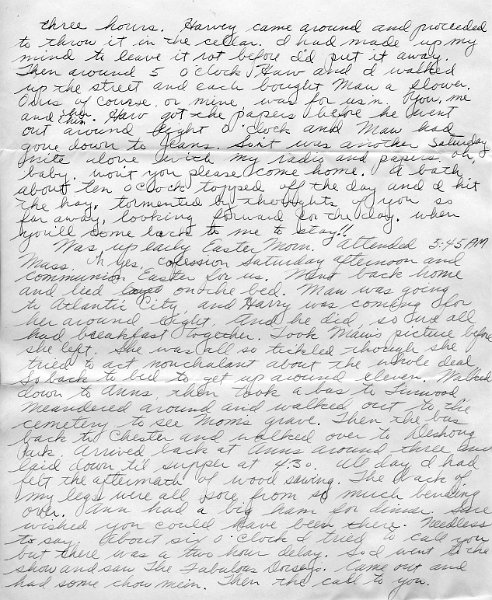 three hours. Harvey came around and proceeded
to throw it in the cellar. I had made up my
mind to leave it rot before I'd put it away.
Then around 5 o'clock Harv and I walked
up the street and each bought Maw a flower.
Ours of course, or mine, was for us'n. You, me
and him. Harv got the papers before he went
out around eight o'clock and Maw had
gone down to Jeans. So it was another Saturday
nite alone with my radio and papers. Oh,
baby. won't you please come home. A bath
about ten o'clock topped off the day and I hit
the hay, tormented by thoughts of you so
far away, looking forward for the day, when
you'll come back to me to stay!!
Was up early Easter Morn. Attended 5:45 AM
Mass. Yes, confession Saturday afternoon and
communion Easter for us. Went back home
and lied on the bed. Maw was going
to Atlantic City, and Harry was coming for
her around eight. And he did, so we all
had breakfast together. Took Maw's picture before
she left. She was all so tickled though she
tried to act nonchalant about the whole deal.
So back to bed to get up around eleven. Walked
down to Anns, then took a bus to Linwood
Meandered around and walked out to the
cemetery to see Mom's grave. Then the bus
back to Chester and walked over to Deshong
Park. Arrived back at Anns around three and
laid down til supper at 4:30. All day I had
felt the aftermath of wood sawing. The back of
my legs were all sore from so much bending
over. Ann had a big ham for dinner. Sure
wished you could have been there. Needless
to say. About six o'clock I tried to call you
but there was a two hour delay. So I went to the
show and saw The Fabulous Dorseys. Came out and
had some chow mein. Then the call to you.